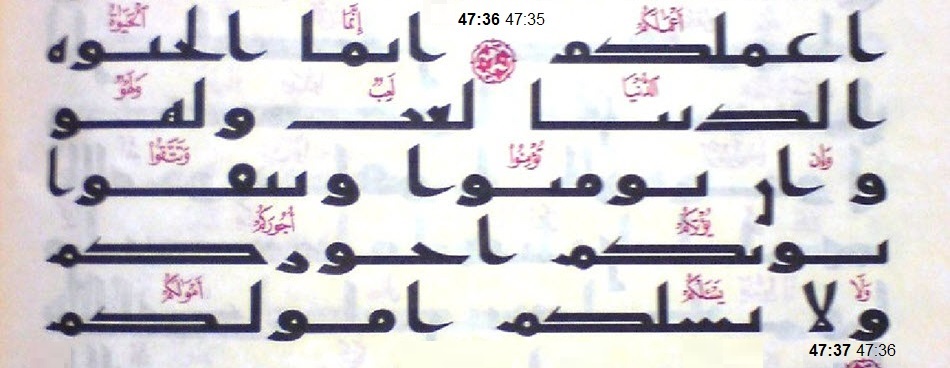 47:36 47:35
أَعْمَٰلَكُمْ إِنَّمَا الْحَيَوٰةُ
اعملكم انما الحيوه
الدُّنْيَا لَعِبٌ وَلَهْوٌ
الدنيا لعب ولهو
وَإِن تُؤْمِنُوا وَتَتَّقُوا
وان تومنوا وتتقوا
يُؤْتِكُمْ أُجُورَكُمْ
يوتكم اجوركم
وَلَا يَسْـَٔلْكُمْ أَمْوَٰلَكُمْ
ولا يسلكم امولكم
47:37 47:36